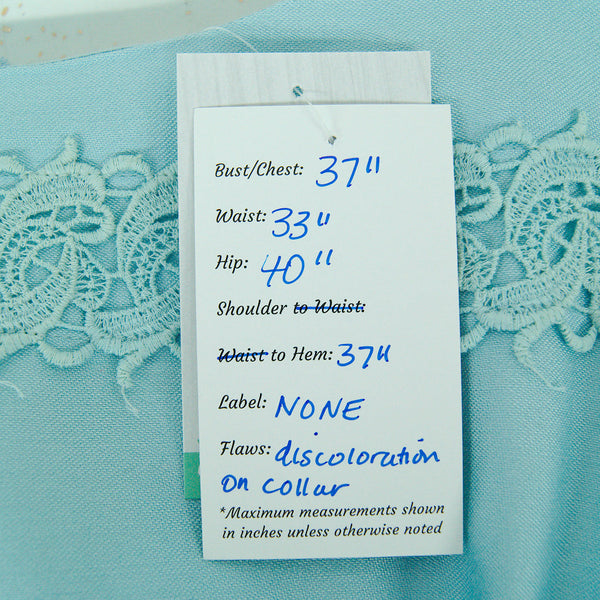 Bust/Chest: 37"
Waist: 33"
Hip: 40"
Shoulder to Waist:
Waist to Hem: 37"
Label: NONE
Flaws: discoloration
on collar
*Maximum measurements shown
in inches unless otherwise noted